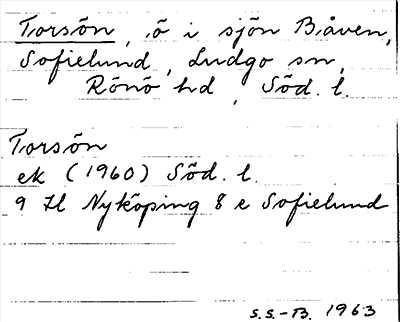 Torsön, ö i sjön Båven,
Sofielund, Ludgo sn,
Rönö hd, Söd. l.
Torsön
ek (1960) Söd. l.
9 H Nyköping 8 e Sofielund
S.S.-B. 1963